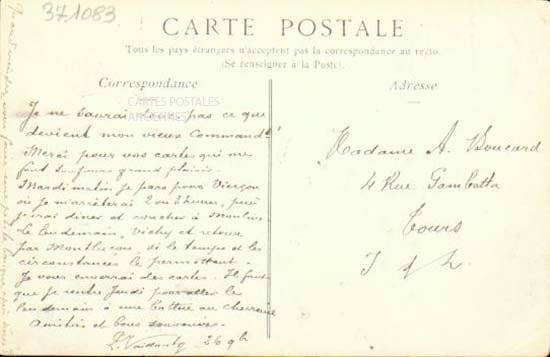 371083
CARTE POSTALE
Tous les pays étrangers n'acceptent pas la correspondance au recto.
(Se renseigner à la Poste).
Correspondance
Adresse
CARTES POSTALES
ANCIENNES
Je ne saurai donc pas ce que
devient mon vieux Command!
Merci pour vos cartes qui me
font toujours grand plaisir.
Mardi matin je pars pour Vierzon
où je m'arrêterai 2 ou 3 heures, puis
j'irai diner et coucher à Moulins
Le lendemain, Vichy et retour
par Montluçon, si le temps et les
circonstances le permettent.
Je vous enverrai des cartes. Il faut
que je rentre Jeudi pour aller le
lendemain à une battue au chevreuil
Amitiés et bons souvenirs.
26 9b
Madame A. Boucard
4 Rue Gambetta
Tours
I & L.